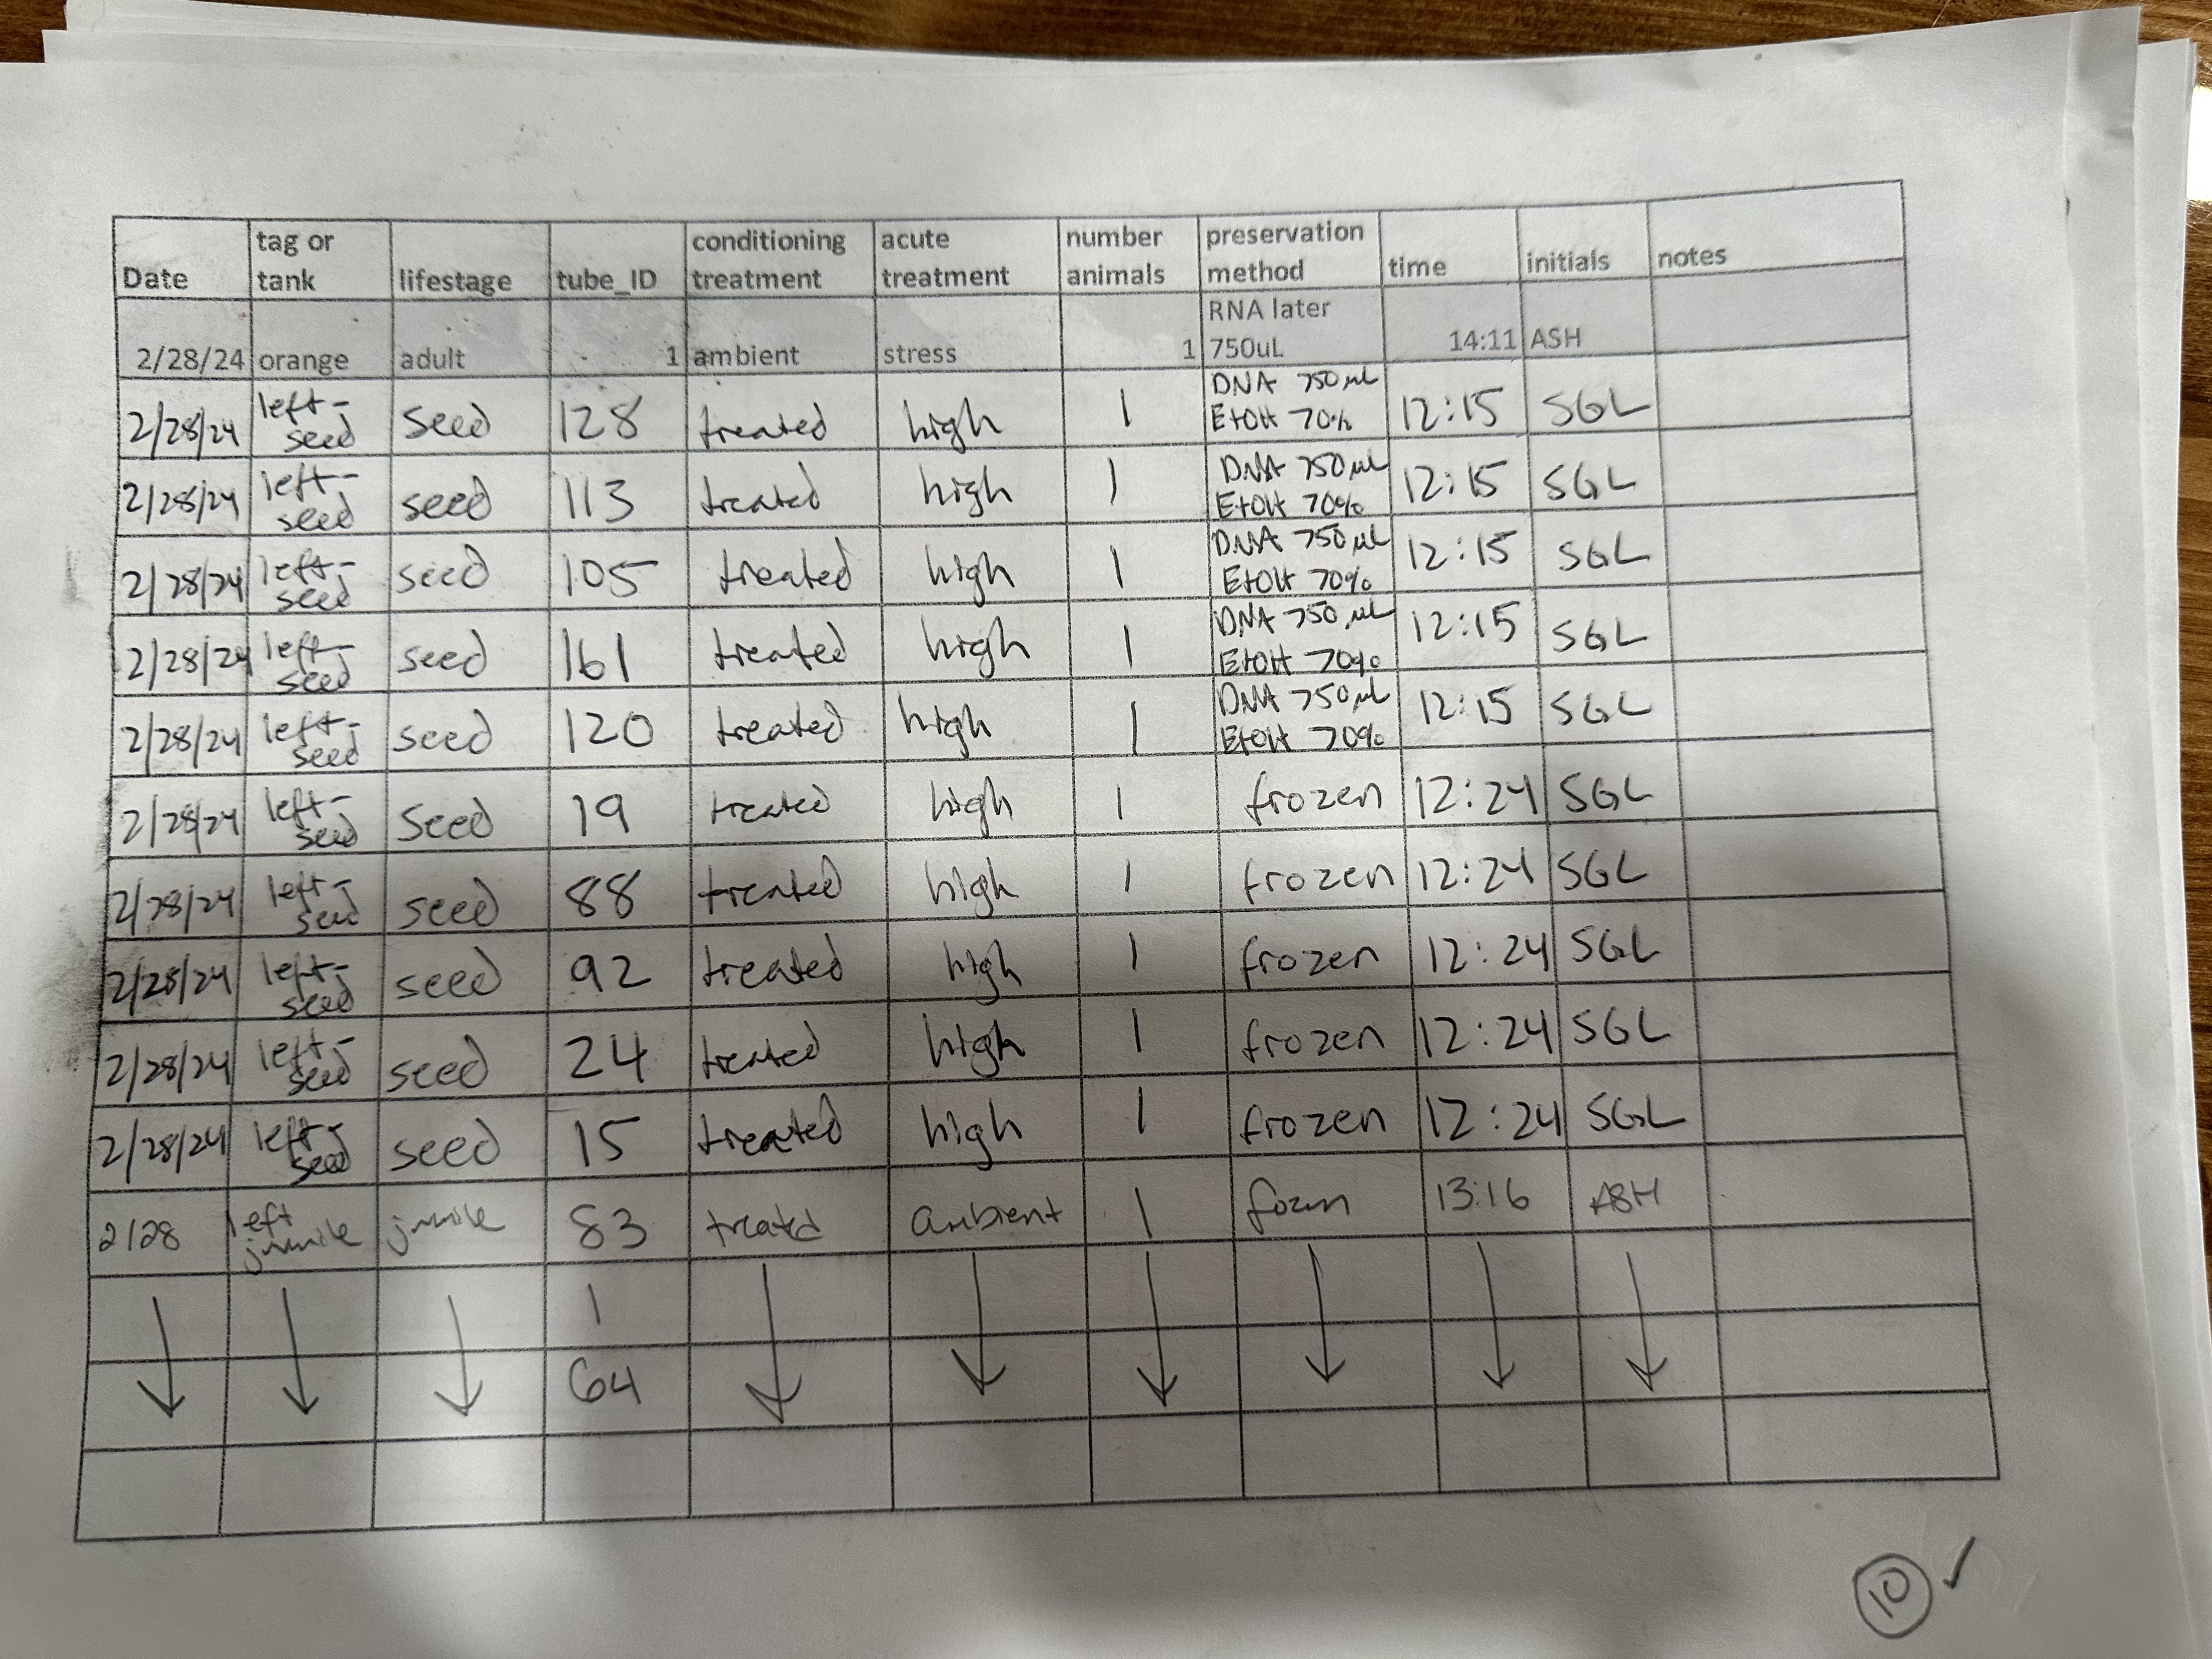 Date tag or tank lifestage tube_ID conditioning treatment acute treatment number animals preservation method time initials notes
2/28/24 orange adult 1 ambient stress 1 RNA later 750uL 14:11 ASH
2/28/24 left-seed seed 128 treated high 1 DNA 750µL EtOH 70% 12:15 SGL
2/28/24 left-seed seed 113 treated high 1 DNA 750µL EtOH 70% 12:15 SGL
2/28/24 left-seed seed 105 treated high 1 DNA 750µL EtOH 70% 12:15 SGL
2/28/24 left-seed seed 161 treated high 1 DNA 750µL EtOH 70% 12:15 SGL
2/28/24 left-seed seed 120 treated high 1 DNA 750µL EtOH 70% 12:15 SGL
2/28/24 left-seed seed 19 treated high 1 frozen 12:24 SGL
2/28/24 left-seed seed 88 treated high 1 frozen 12:24 SGL
2/28/24 left-seed seed 92 treated high 1 frozen 12:24 SGL
2/28/24 left-seed seed 24 treated high 1 frozen 12:24 SGL
2/28/24 left-seed seed 15 treated high 1 frozen 12:24 SGL
2/28 left 83 treated ambient 1 13:16 ASH
1
64
10